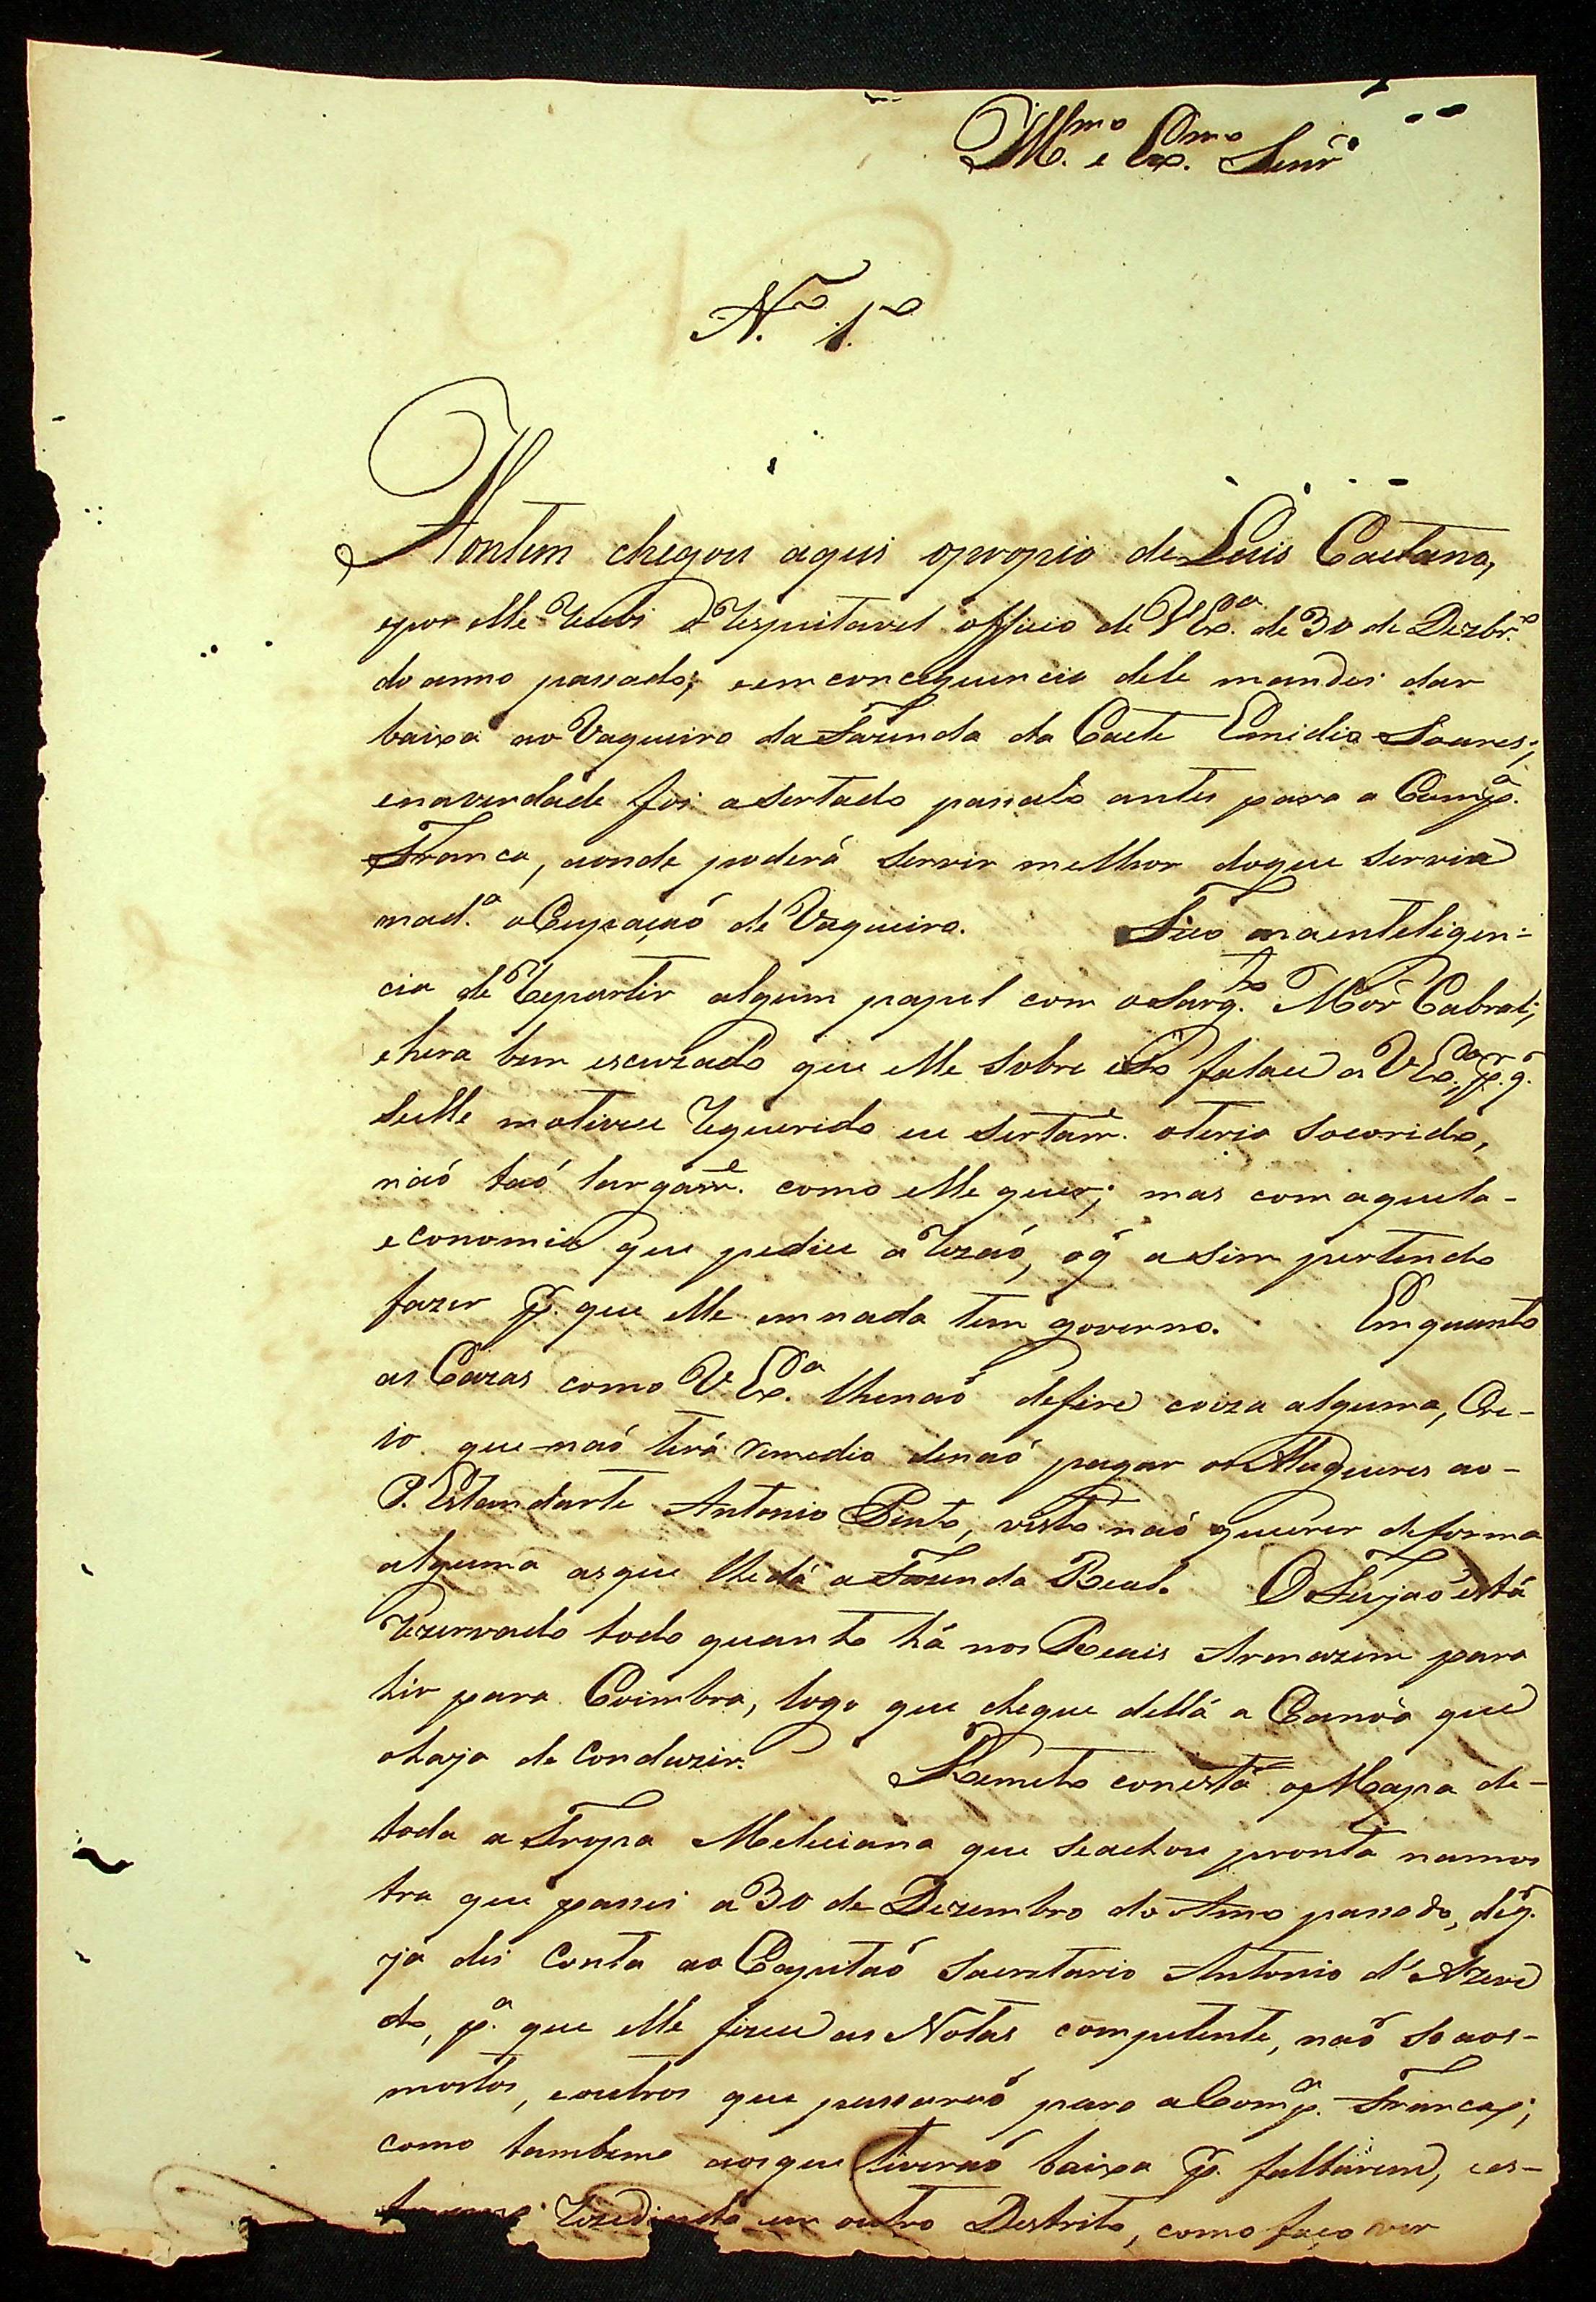 Ill.mo e Ex.mo Senr.
N.o 1.o
Hontem chegou aqui opropio de Luis Caetano,
epor elle recebi o respeitavel officio de VEx.a de 30 de Dezbr.o
do anno passado; eemconcequencia dele mandei dar
baixa ao Vaqueiro da Fazenda da Caete Emidio Soares;
enaverdade foi asertado passalo antes para a Comp.a
Franca, aonde poderá servir melhor doque servia
nad.a oCupaçaó de Vaqueiro. Fico naenteligen-
cia de repartir algum papel com oSarg.to Mór Cabral;
ehera bem escuzado que elle sobre isto falace a VEx.a, p.q.
seelle motivece requerido eu sertam.e oteria socorido,
naó taó largam.e como elle quer; mas com aquela-
economia que pedice a rezaó, oq̃ asim pertendo
fazer p. que elle emnada tem governo. Emquanto
as Cazas como VEx.a lhenaó defire coiza alguma, Cre-
io que naó terá remedio denaó pagar os Alugueres ao-
P. Estandarte Antonio Pinto, visto naó querer deforma
alguma asque lhedá a Fazenda Real. O Feijaó está
rezervado todo quanto há nos Reais Armazens para
hir para Coimbra, logo que chegue dellá a Canoa que
ohaja de Conduzir. Remeto conesta o Mapa de-
toda a Tropa Meliciana que seachou pronta namos
tra que passei a 30 de Dezembro do Anno passado, deq.
já dei Conta ao Capitaó Secretario Antonio d'Azeve
do, p.a que elle fizece as Notas competente, naó so aos-
mortos, eoutros que passaraó para aComp.a Franca;
como tambem aosque tiveraó baixa p. faltarem, ees-
rezedindo em outro Destrito, como faço ver